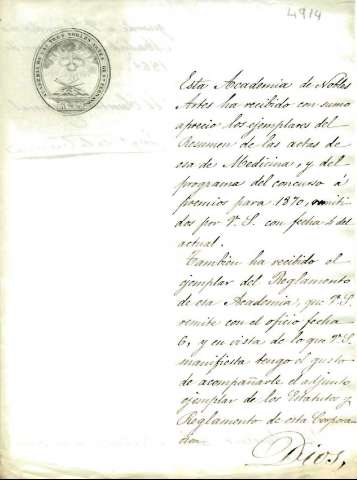 4914
Esta Academia de Nobles
Artes ha recibido con sumo
aprecio los ejemplares del
Resumen de las actas de
esa de Medicina, y del
programa del concurso á
premios para 1870, remiti
dos por V. S. con fecha 4 del
actual.
Tambien ha recibido el
ejemplar del Reglamento
de esa Academia, que V. S.
remite con el oficio fecha
6, y en vista de lo que V. S.
manifiesta tengo el gusto
de acompañarle el adjunto
ejemplar de los Estatutos y
Reglamento de esta Corpora-
cion.
Dios,